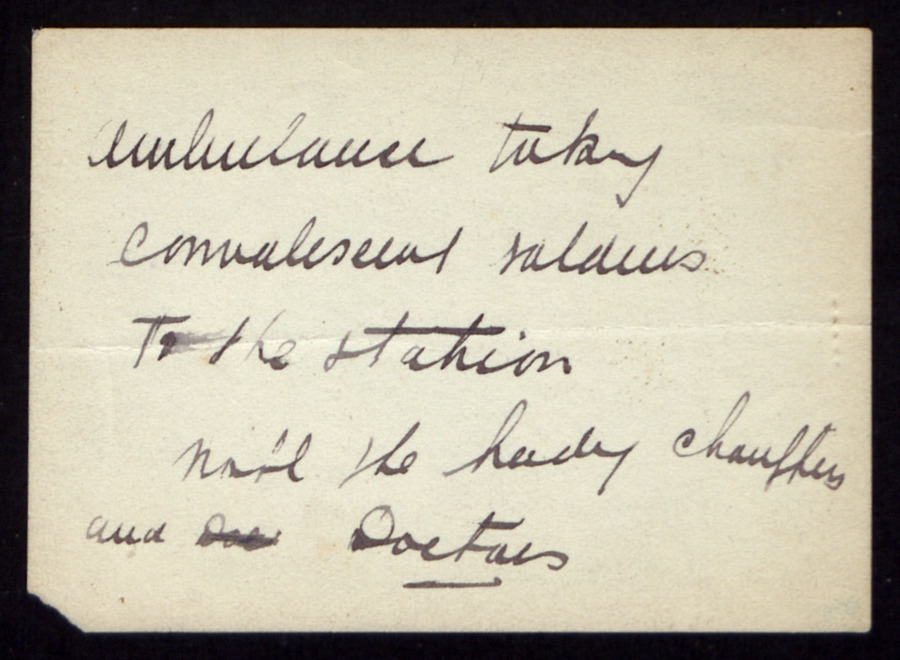 Ambulance taking
convalescent soldiers
To the station
the chauffers
and Doctors